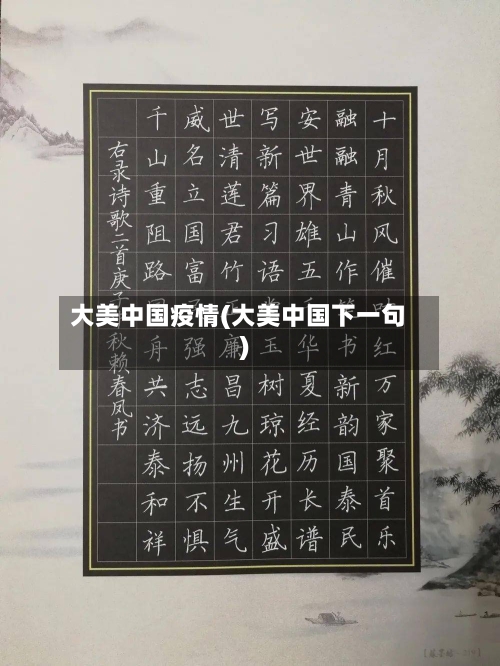 大美中国疫情(大美中国下一句
)
十月秋风催红万家聚首乐
融融青山作书新韵国泰民
安世界雄五华夏经历长谱
写新篇习语玉树琼花开盛
世清莲君竹廉昌九州生气
威名立国富强志远扬不惧
千山重阻路舟共济泰和祥
右录诗歌二首庚子秋赖春凤书